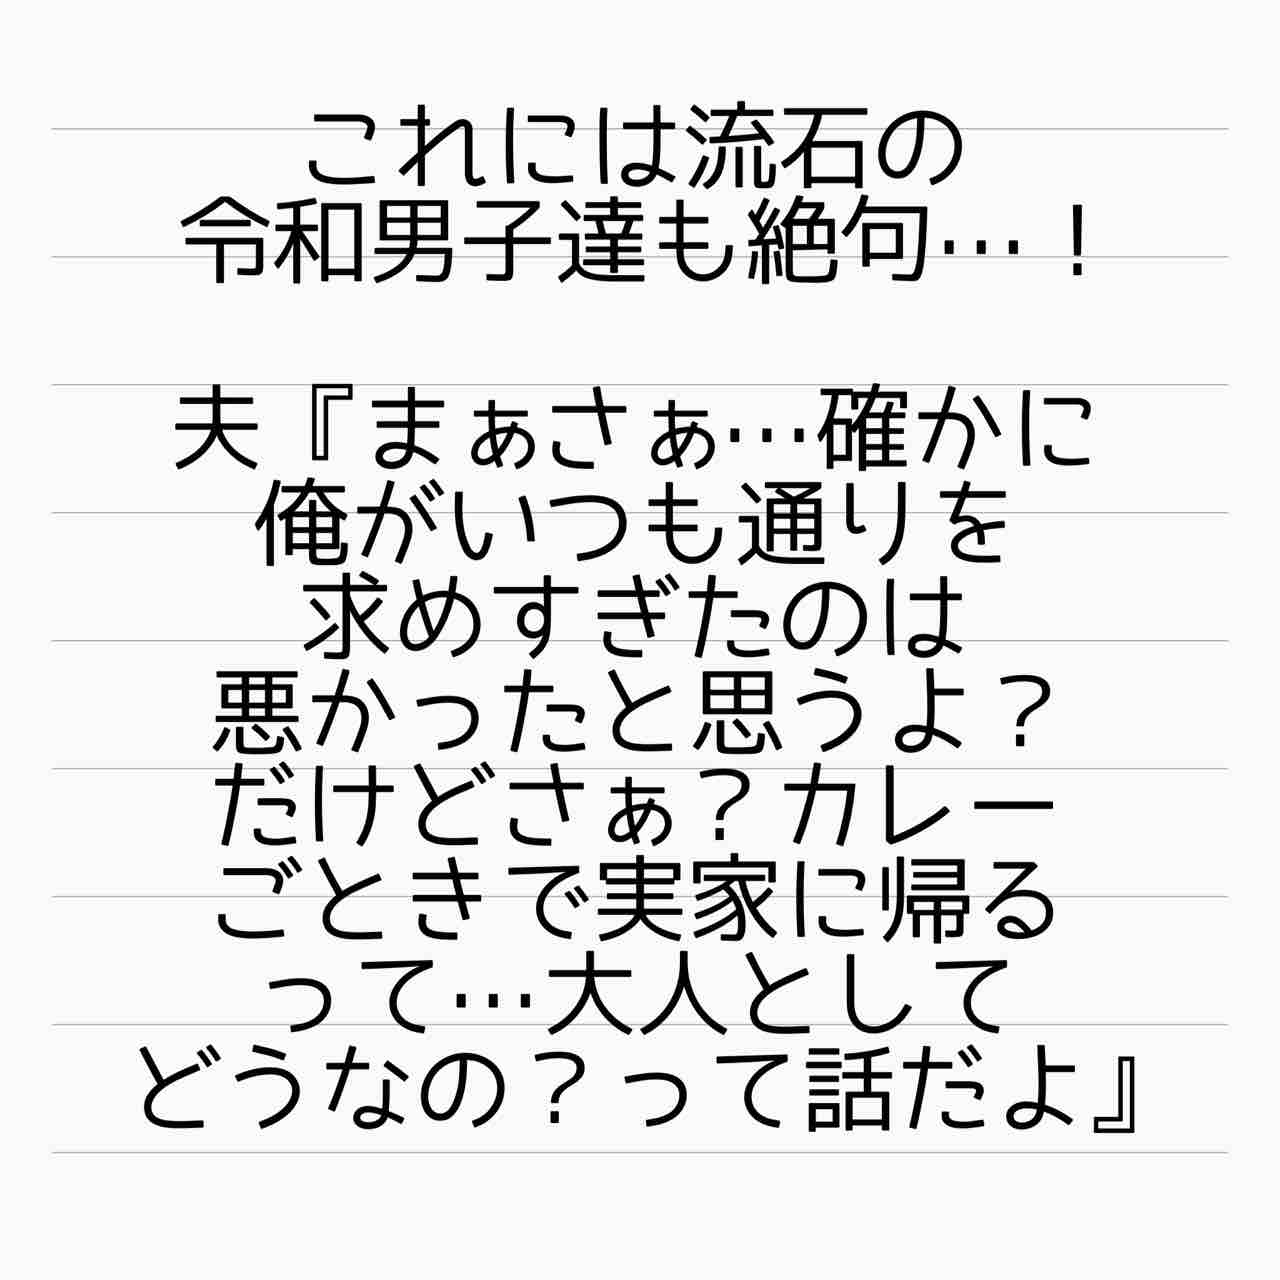 これには流石の
令和男子達も絶句…！
夫『まぁさぁ…確かに
俺がいつも通りを
求めすぎたのは
悪かったと思うよ？
だけどさぁ？カレー
ごときで実家に帰る
って…大人として
どうなの？って話だよ』